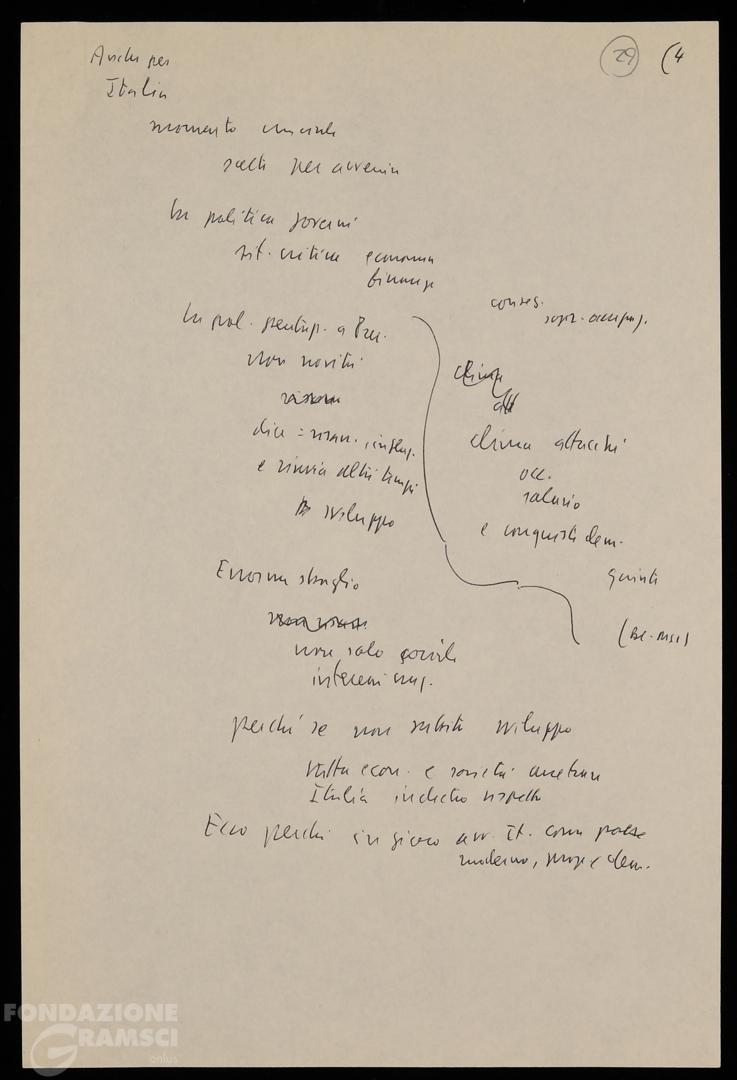 29 (4
Anche per
Italia
momento cruciale
scelte per avvenire
la politica governi
sit. critica economia
finanza
la pol. pentap. a Bre.
non novità
dice = risan. inflaz.
e rinvia altri tempi
sviluppo
conseg.
sopr. occupaz.
clima attacchi
occ.
salario
e conquiste dem.
quindi
Enorme sbaglio
non solo sociale
interessi naz.
perché se non subito sviluppo
tutta econ. e società arretra
Italia indietro rispetto
Ecco perché in gioco avv. It. come paese
moderno, prog. e dem.
FONDAZIONE
GRAMSCI
onlus